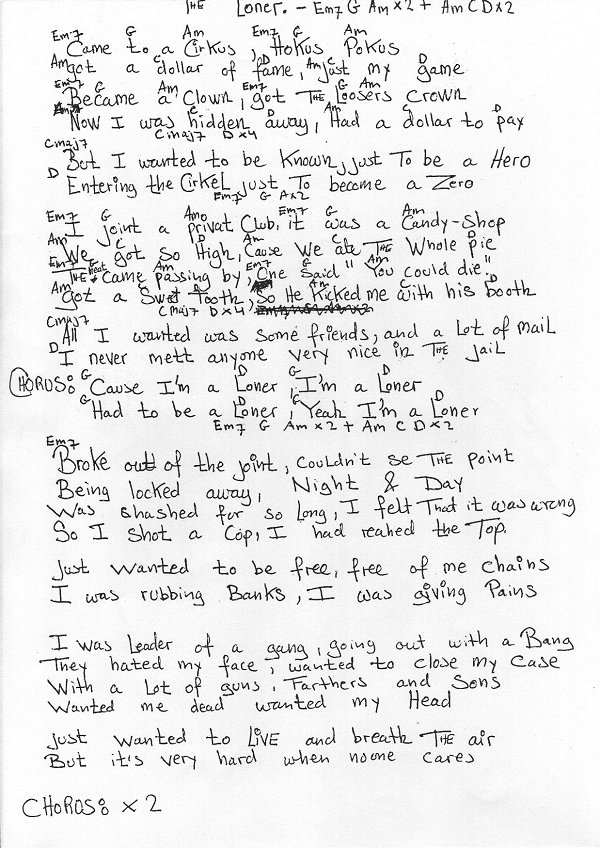 THE Loner. - Em7 G Am x2 + Am C D x2
Em7 G Am Em7 G Am
Came to a Cirkus, Hokus Pokus
Am C D Am C D
got a dollar of fame, just my game
Em7 G Am Em7 G Am
Became a Clown, got THE Loosers Crown
Am C D Am C D
Now I was hidden away, Had a dollar to pay
Cmaj7 D x4
Cmaj7
But I wanted to be Known, just To be a Hero
D Entering the Cirkel just To become a Zero
Em7 G A x2
Em7 G Am Em7 G Am
I joint a privat Club, it was a Candy-Shop
Am C D Am C D
We got so High, Cause We ate THE Whole pie
Em7 G Am Em7 G Am
THE Heat Came passing by, One said "You could die."
Am C D Am C D
Got a Sweet Tooth, So He Kicked me with his booth
Cmaj7 D x4
Cmaj7
All I wanted was some friends, and a Lot of maiL
D I never mett anyone very nice in THE jaiL
CHORUS: G D G D
'Cause I'm a Loner, I'm a Loner
G D G D
Had to be a Loner, Yeah I'm a Loner
Em7 G Am x2 + Am C D x2
Em7
Broke out of the joint, Couldn't se THE point
Being locked away, Night & Day
Was shashed for so Long, I felt That it was wrong
So I shot a Cop, I had reahed the Top.
just wanted to be free, free of me chains
I was rubbing Banks, I was giving Pains
I was Leader of a gang, going out with a Bang
They hated my face, wanted to close my Case
With a Lot of guns, Farthers and Sons
Wanted me dead wanted my Head
just wanted to LIVE and breath THE air
But it's very hard when noone cares
CHOROS: x 2